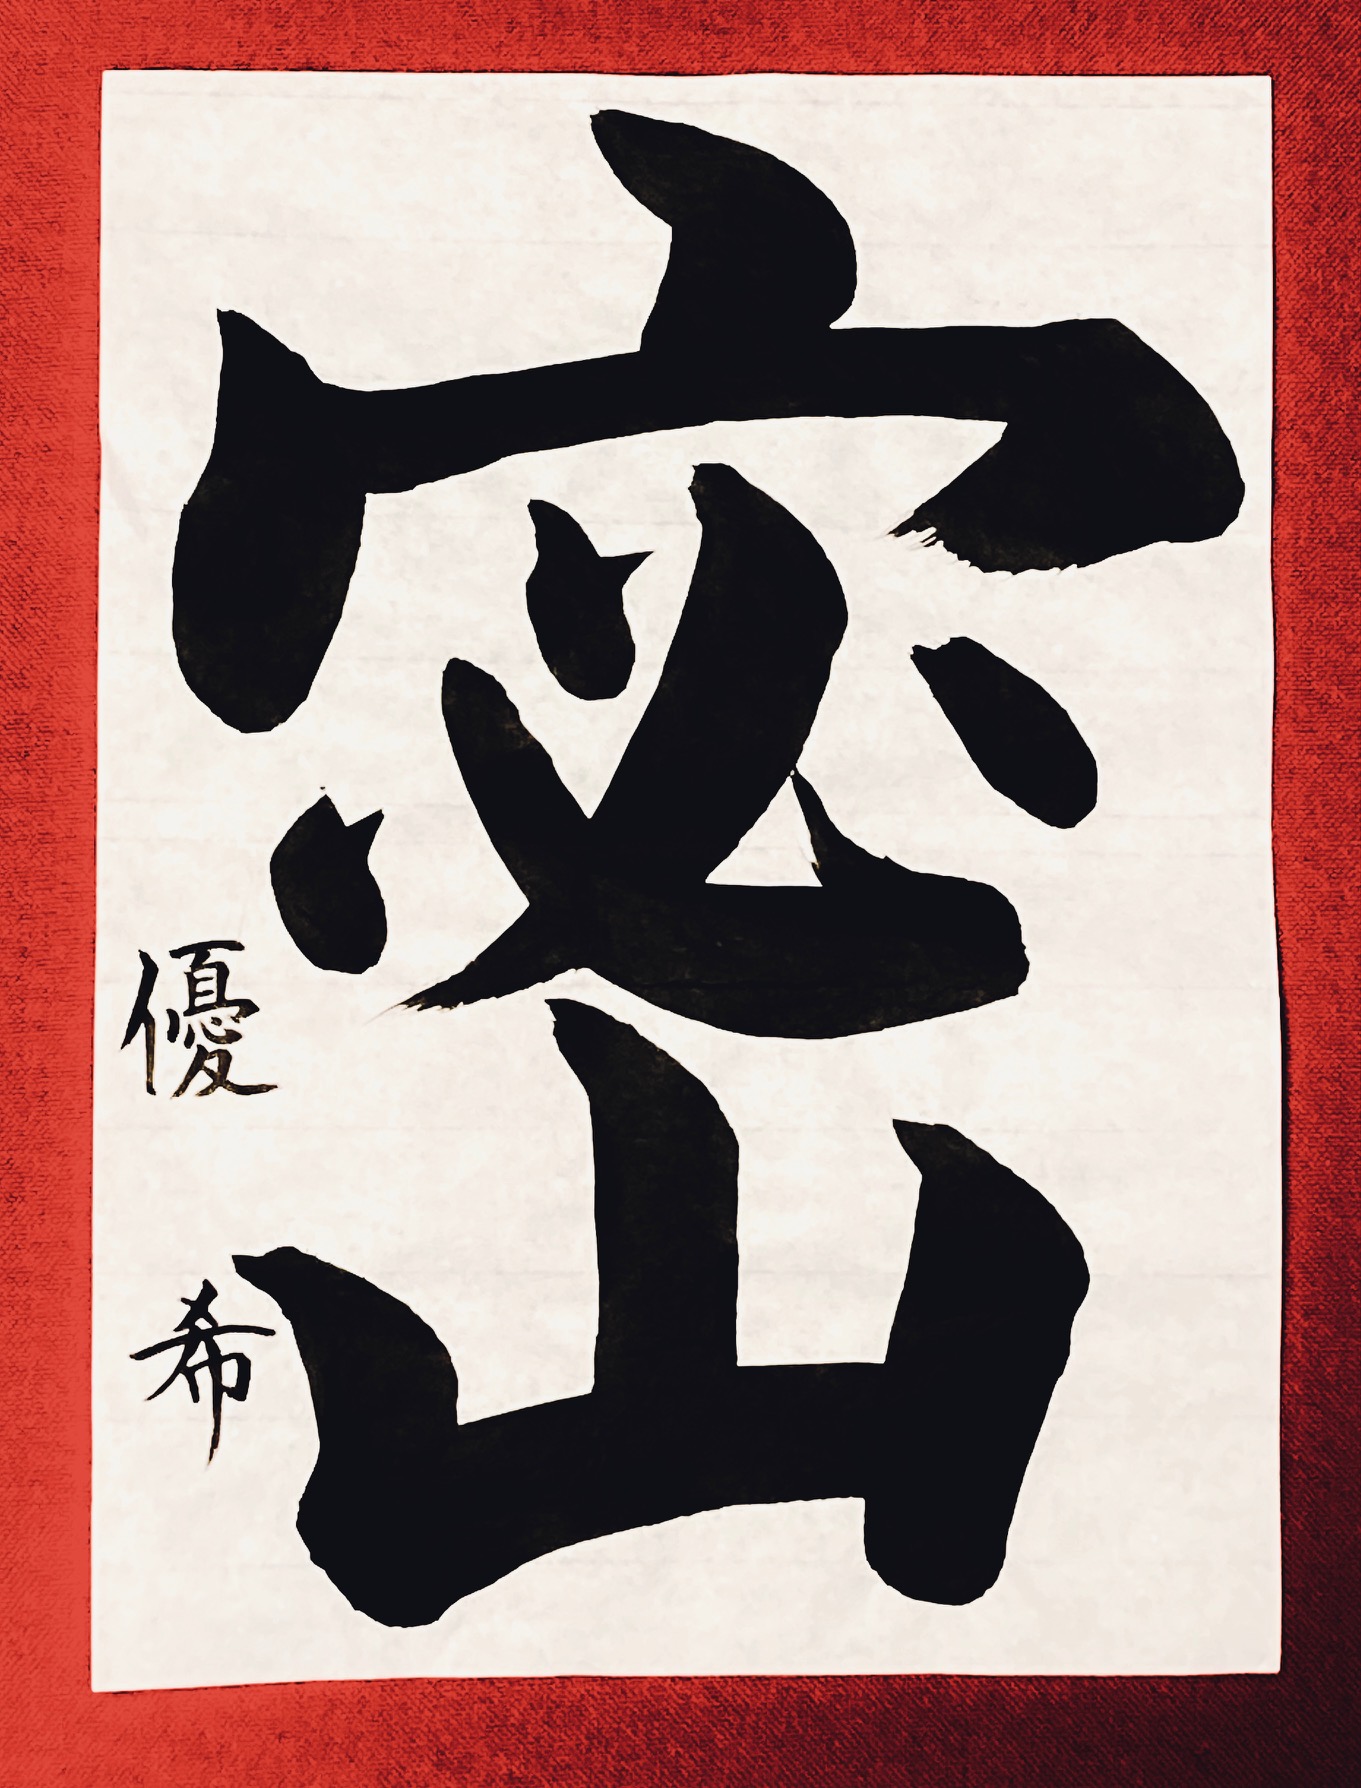 密
優希